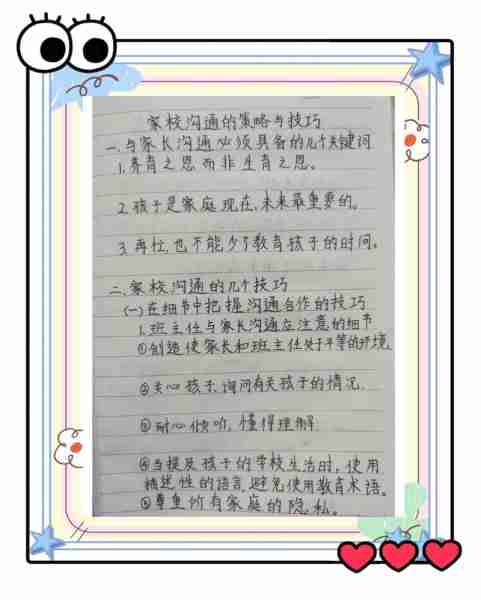 家校沟通的策略与技巧
一、与家长沟通必须具备的几个关键词
1.养育之恩而非生育之恩。
2.孩子是家庭现在、未来最重要的。
3.再忙,也不能少了教育孩子的时间。
二、家校沟通的几个技巧
(一)在细节中把握沟通合作的技巧
1.班主任与家长沟通应注意的细节
①创造使家长和班主任处于平等的环境.
②关心孩子,询问有关孩子的情况.
③耐心倾听,懂得理解
④当提及孩子的学校生活时,使用
描述性的语言,避免使用教育术语。
⑤尊重所有家庭的隐私。